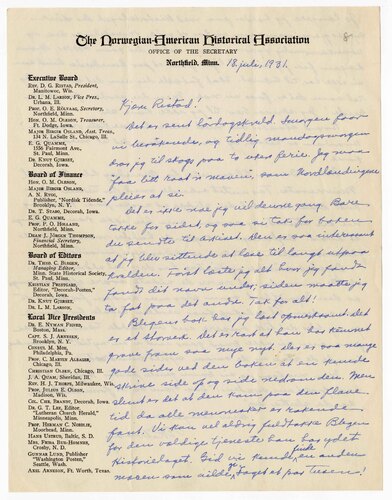 The Norwegian-American Historical Association
OFFICE OF THE SECRETARY
Northfield, Minn.
18. juli, 1931.
Executive Board
REV. D. G. RISTAD, President,
Manitowoc, Wis.
DR. L. M. LARSON, Vice Pres.,
Urbana, Ill.
PROF. O. E. RÖLVAAG, Secretary,
Northfield, Minn.
HON. O. M. OLESON, Treasurer,
Ft. Dodge, Iowa.
MAJOR BIRGER OSLAND, Asst. Treas.,
134 N. LaSalle St., Chicago, Ill.
E. G. QUAMME,
1536 Fairmount Ave.,
St. Paul, Minn.
DR. KNUT GJERSET,
Decorah, Iowa.
Board of Finance
HON. O. M. OLESON.
MAJOR BIRGER OSLAND.
A. N. RYGG,
Publisher, "Nordisk Tidende,"
Brooklyn, N. Y.
DR. T. STABO, Decorah, Iowa.
E. G. QUAMME.
PROF. P. O. HOLLAND,
Northfield, Minn.
DEAN J. JÖRGEN THOMPSON,
Financial Secretary,
Northfield, Minn.
Board of Editors
DR. THEO. C. BLEGEN,
Managing Editor,
Minn. State Historical Society,
St. Paul, Minn.
KRISTIAN PRESTGARD,
Editor, "Decorah-Posten,"
Decorah, Iowa.
DR. KNUT GJERSET.
DR. L. M. LARSON.
Local Vice Presidents
DR. E. NYMAN FISHER,
Boston, Mass.
CAPT. S. J. ARNESEN,
Brooklyn, N. Y.
CONSUL M. MOE,
Philadelphia, Pa.
PROF. C. MARTIN ALSAGER,
Chicago, Ill.
CHRISTIAN OLSEN, Chicago, Ill.
J. A. QUAM, Sheridan, Ill.
REV. H. J. THORPE, Milwaukee, Wis.
PROF. JULIUS E. OLSON,
Madison, Wis.
COL. CHR. BRANDT, Decorah, Iowa.
DR. G. T. LEE, Editor
"Lutheran Church Herald,"
Minneapolis, Minn.
PROF. HERMAN C. NORDLIE,
Moorhead, Minn.
HANS USTRUD, Baltic, S. D.
MRS. FRIDA BUE-HOMNES,
Crosby, N. D.
GUNNAR LUND, Publisher
"Washington Posten,"
Seattle, Wash.
AXEL ARNESON, Ft. Worth, Texas.
Kjære Ristad!
Det er sent lördagskveld. Imorgen faar
vi og tidlig mandagsmorgen
maa jeg til skogs paa to ukers ferie. Jeg maa
faa litt raat i maven, som Nordlændingene
pleier at si.
Det er ikke noe jeg vil denne gang. Bare
takke for sidst og saa si takk for boken
du sendte til arkivet. Den er saa interessant
at jeg blev sittende at læse til langt utpaa
kvelden. Först læste jeg alt hvor jeg fandt
dit navn under; siden maatte jeg
ta fat paa det andre. Tak for alt!
Blegens bok har jeg läst opmerksomt. Det
er et storverk. Det er rart at han har kunnet
grave fram saa mye nyt. Der er saa mange
gode sider ved den boken at en kunde
skrive side op og side ned om den. Men
slemt er det at den kom paa den flaue
tid da alle mennesker er rakende
fant. Vi kan vel aldrig fuldtakke Blegen
for den veldige tjeneste han har ydet
Historielaget. Gid vi kunde finde en anden
mæcen som vilde gi laget et par tusen!